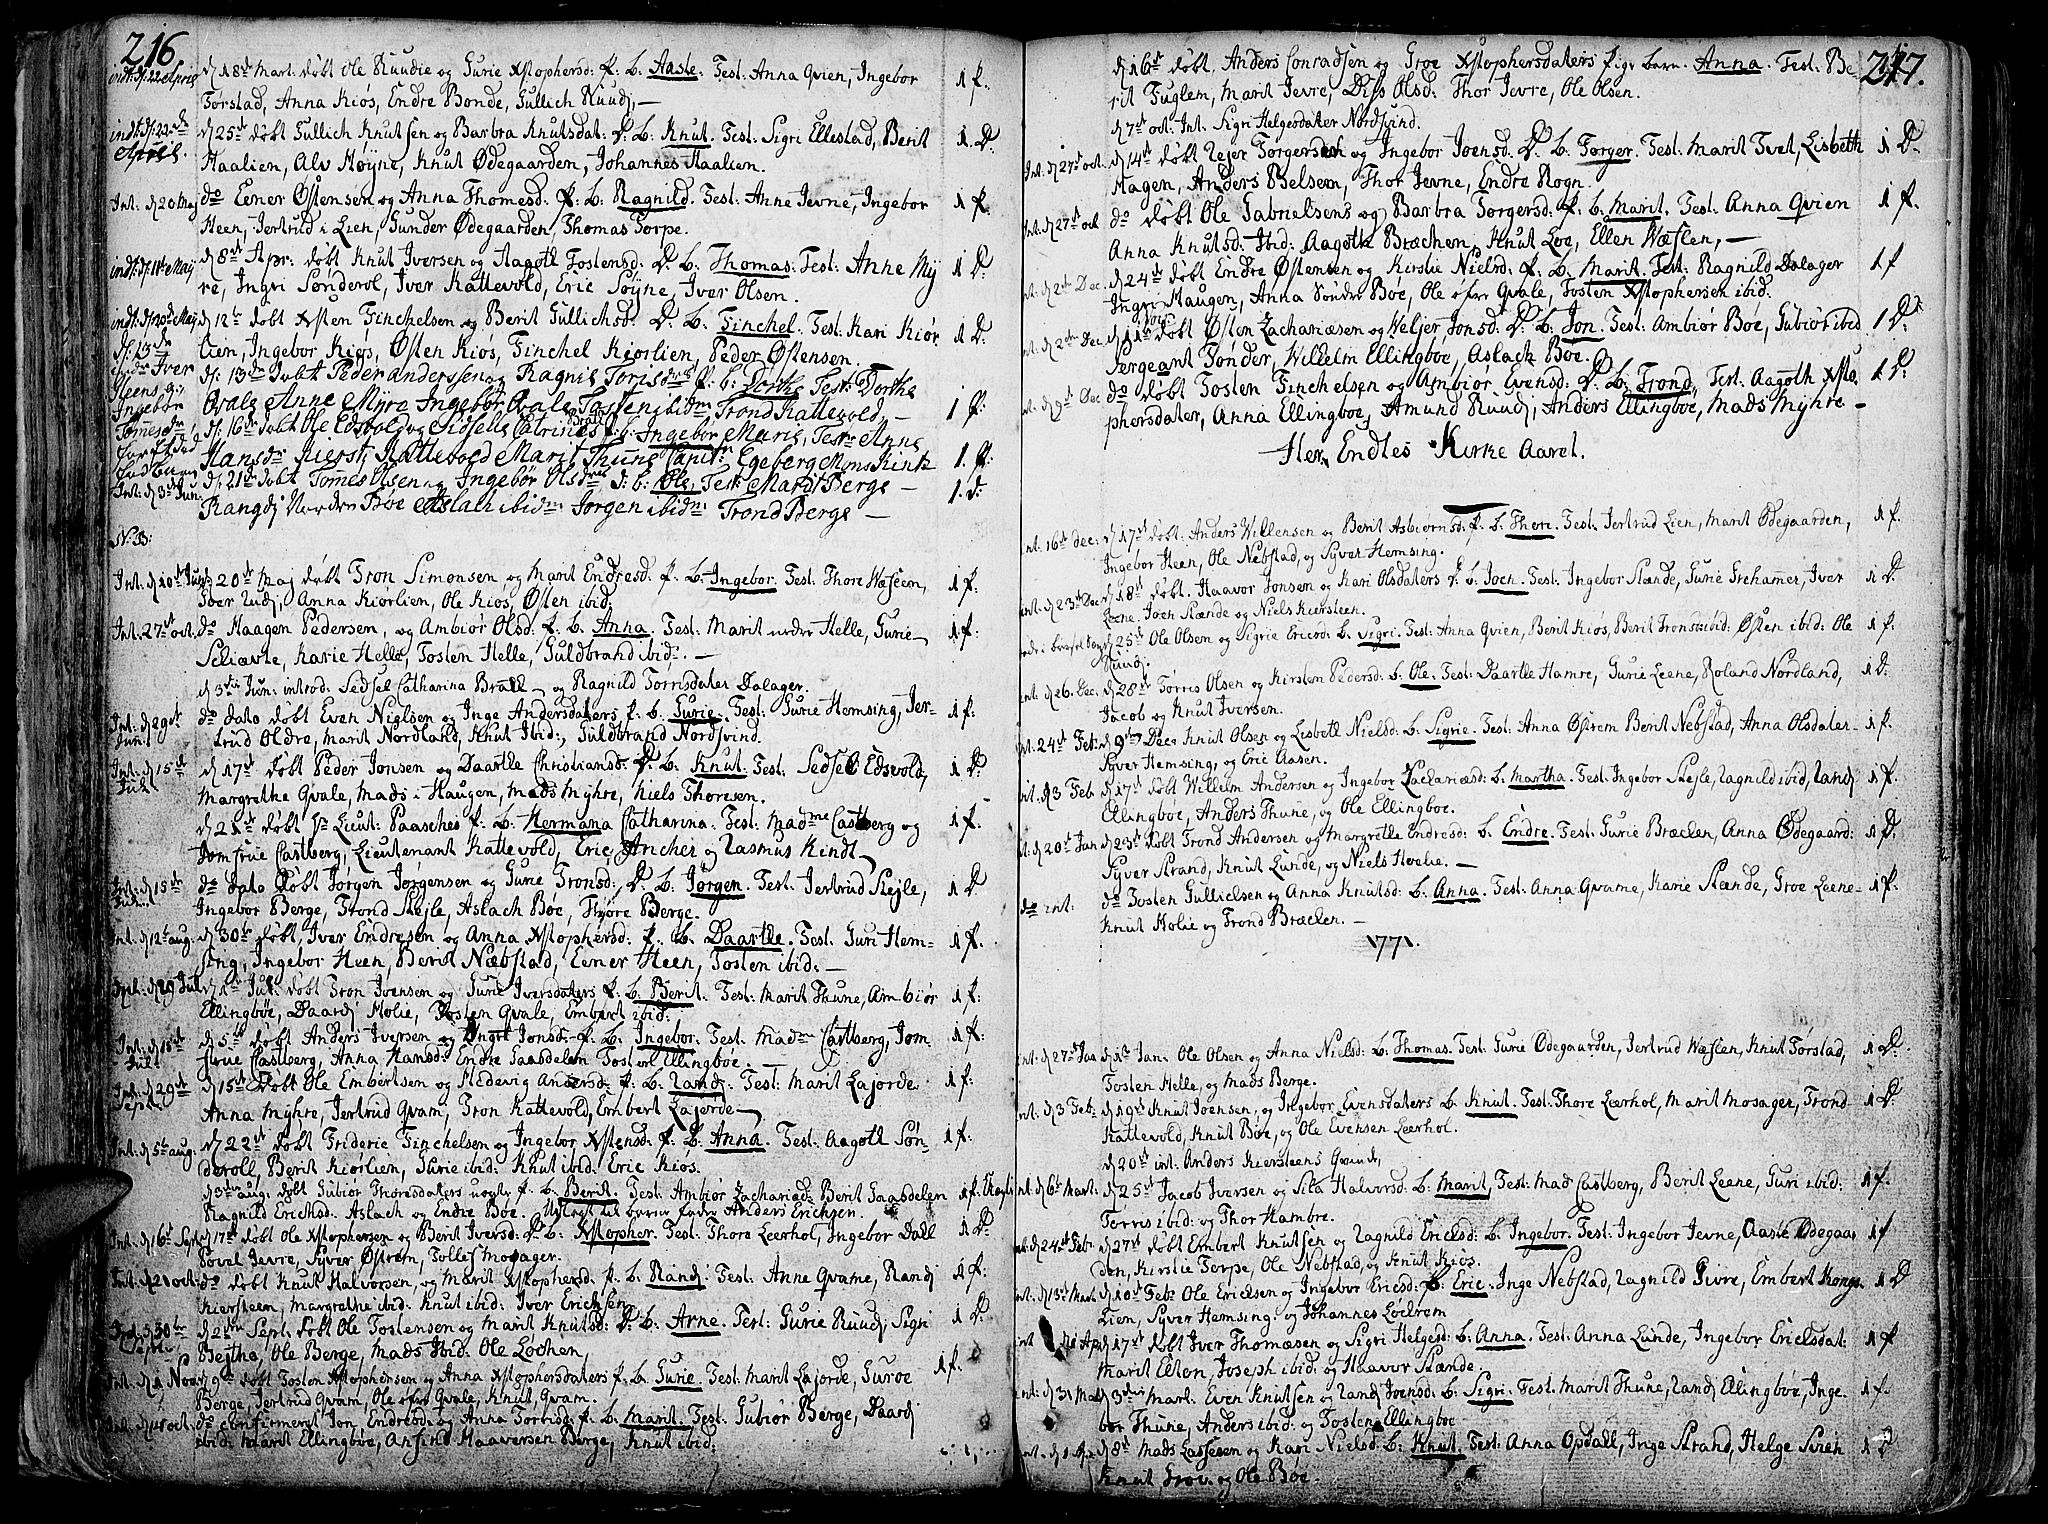 216
indt: d: 22 April
d 18de Mart: døbt Ole Ruudie og Gurie Xstophersd: p. b. Aaste. Test: Anna Qvien, Ingebor 1 p.
Torstad, Anna Kiøs, Endre Bonde, Gullich Ruudj,—
indt: d: 22de April.
d 25de døbt Gullich Knutsen og Barbra Knutsdat: D. b: Knut. Test: Sigri Ellestad, Berit 1. D:
Haalien, Alv Høyne, Knut Ødegaarden, Johannes Haalien.
Int: d 20 Maj
do Eener Østensen og Anna Thomesd: p: b: Ragnild. Test: Anne Jevne, Ingebor 1 p:
Heen, Jertrud i Lien, Gunder Ødegaarden, Thomas Torpe.
indt: d: 11te Maij
d 8de Apr: døbt Knut Iversen og Aagott Tostensd: D. b. Thomas: Test: Anne My 1 D:
re, Ingri Sønderol, Iver Kattevold, Eric Søyne, Iver Olsen.
indt: d: 20de Maij
d 12te døbt Xsten Finchelsen og Berit Gullichsd: D. b. Finchel. Test: Kari Kiør 1 D:
lien, Ingebor Kiøs, Østen Kiøs, Finchel Kiørlien, Peder Østensen.
d: 13de døbt Peder Anderssen og Ragnil Torisdr p: b: Dorthe Test: Dorthe
Qvale Anne Myre Ingebor Qvale Tosten ibidm Trond Kattevold,— 1 p:
d: 16de døbt Ole Edsvold og Sidselle Catrines p: b: Ingebor Marie, Testr Anne
Hansdr Kierst, Kattevold Marit Thune Capit: Egeberg Mons Kintz 1. p:
d: 21de døbt Tomes Olsen og Ingebør Olsdr d: b: Ole, Test: Marit Berge — 1. d:
Int: d 3de Jun:
Rangdj Nordre Bøe Aslach ibidm Jorgen ibidm Trond Berge —
N: B:
Int: d 10de Juni
d 20de Maj døbt Tron Simonsen, og Marit Endresd: p. b: Ingebor. Test: Thore Wæseen, 1 p:
Iver Rudj, Anna Kiørlien, Ole Kiøs, Østen ibid:
Int: 27de oct.
do Haagen Pedersen, og Ambiør Olsd: p. b. Anna. Test: Marit nedre Helle, Gurie 1 p:
Seliævte, Karie Helle, Tosten Helle, Guldbrand ibid: —
d 3die Jun: introd: Sedsel Catharina Brall og Ragnild Torrisdater Dalager.
Int: d 29de Juni
do dato døbt Even Nielsen og Inge Andersdaters p. b. Gurie. Test: Gurie Hemsing, Jer- 1 p:
trud Oldre, Marit Nordland, Knut Ibid:, Guldbrand Nordsvind.
Int: d 15de Jul:
d 17de døbt Peder Jonsen og Daartle Christiansd: D. b. Knut. Test: Sedsel Edsvold, 1 D:
Margrethe Qvale, Mads i Haugen, Mads Myhre, Niels Thoresen.
d 21de døbt Hr Lieut: Paasches p. b. Hermana Catharina. Test: Madme Castberg og 1 p:
Jomfrue Castberg, Lieutenant Kattevold, Eric Ancher og Rasmus Kindt
Int: d 15de Jul:
do dato døbt Jørgen Jorgensen og Gurie Tronsd: D. b. Jørgen. Test: Jertrud Skejle, 1 D
Ingebor Berge, Trond Skejle, Aslach Bøe, Thore Berge.
Int: d 12te aug:
d 30te døbt, Iver Endresen og Anna Xstophersd: p. b. Daartle. Test: Guri Hem- 1 p.
sing, Ingebor Heen, Berit Næbstad, Eener Heen, Tosten ibid:—
Int: d 29 Jul
d 1te Jul: døbt Tron Ivensen og Gurie Iversdaters p. b. Berit. Test: Marit Thune, Ambiør 1 p:
Ellingbøe, Daardj Molie, Tosten Qvale, Embert ibid:
Int: d 15de Juli
d 5te døbt Anders Iversen og Ingri Jonsd: p. b: Ingebor. Test: Madme Castberg, Jom- 1 p:
frue Castberg, Anna Hansd: Endre Gaasdelen Tosten Ellingbøe. —
Int: d 29de Sept:
d 15de døbt Ole Embertsen og Hedevig Andersd: p. b. Randj. Test: Marit Lajorde 1 p.
Anna Myhre, Jertrud Qvam, Tron Kattevold, Embert Lajorde —
Int: d 5te aug.
d 22de døbt Frideric Finchelsen og Ingebor Xstensd: p. b. Anna. Test: Aagott Søn- 1 p:
deroll, Berit Kiørlien, Gurie ibid: Knut ibid: Eric Kiøs.
d 3die aug: døbt Gubiør Thoresdaters uægte p. b. Berit. Test: Ambiør Zachariæd: Berit Gaasdelen 1 p.
Ragnild Ericksd: Aslach og Endre Bøe. Udlagt til barne fader Anders Erichsen.
Int: d 16de Sept
d 17de døbt Ole Xstophersen og Berit Iversd: D. b. Xstopher. Test: Thore Leerhol, Ingebor Dall 1 D:
Sovel Jevre, Syver Østrem, Tolles Mosager.
Int: d 21 oct:
do døbt Knut Halvorsen, og Marit Xstophersd: p. b. Randj. Test: Anne Qvame, Randj 1 p:
Kiersteen, Margrethe ibid: Knut ibid: Iver Erichsen
Int: d 30te Sept:
d 2den Sept: døbt Ole Tostensen og Marit Knutsd: D. b. Arne. Test: Gurie Ruudj Sigri 1 D:
Bejtha, Ole Berge, Mads Ibid: Ole Lochen,
Int: d 1 Nov
d 9de døbt Tosten Xstophersen og Anna Xstophersdaters p. b. Gurie. Test: Marit Lajorde, Guroe 1 p.
Berge, Jertrud Qvam, Ole øfre Qvale, Knut Qvam.
Int: d 15 oct.
do confirmeret Jon Endresd: og Anna Torrisd: p. b. Marit. Test: Gubiør Berge, Daardj
ibid: Marit Ellingbøe, Ansind Haaversen Berge, Knut ibid:
217.
d 16de døbt. Anders Conradsen og Groe Xstophersdaters pige barn. Anna. Test: Be-
rit Fuglem, Marit Jevre, Diss Olsd: Thor Jevre, Ole Olsen.
d 7de oct: Int: Sigri Helgesdater Nordsvind.
Int: d 27de oct.
d 14de døbt Rejer Torgersen og Ingebor Joensd: D. b. Torger. Test: Marit Tvet, Lisbeth 1 D:
Hagen, Anders Belseen, Thor Jevne, Endre Rogn.
Int: d 27de oct
do døbt Ole Gabrielsens og Barbra Torgersd: p. b: Marit. Test: Anna Qvien 1 p.
Anna Knutsd: Ibid: Aagoth Bræchen, Knut Loe, Ellen Wæslen,—
Int: d 2de Dec.
d 24de døbt Endre Østensen og Kirstie Nielsd: p. b. Marit. Test: Ragnild Dalager 1 p
Ingri Haugen, Anna Søndre Bøe, Ole øfre Qvale, Tosten Xstophersen ibid:
Int: d 2den Dec
d 11te Nov: døbt Østen Zachariæsen og Weljer Jonsd: D. b. Jon. Test: Ambiør Bøe, Gubiør ibid 1 D:
Sergeant Tønder, Wilhelm Ellingbøe, Aslach Bøe.
Int: d 9de Dec
do døbt Tosten Finchelsen og Ambiør Evensd: D. b. Trond, Test: Aagoth Xsto- 1 D:
phersdater, Anna Ellingboe, Amund Ruudj, Anders Ellingbøe, Mads Myhre —
Her Endtes Kirke Aaret.
Int: 16de Dec:
d 17de døbt: Anders Willensen og Berit Asbiørnsd: p. b. Thore. Test: Jertrud Lien, Marit Ødegaarden, 1 p.
Ingebor Heen, Ole Nebstad, og Syver Hemsing.
Int: d 23de Dec
d 18de døbt. Haavor Jonsen og Kari Olsdaters D. b. Joen. Test: Ingebor Stænde, Gurie Grehammer, Iver 1 D.
Leene, Joen Stænde og Niels Kiersteen.
d 25de Ole Olsen og Sigrie Ericsd: b. Sigri. Test: Anna Qvien, Berit Kiøs, Berit Tronsd ibid: Østen ibid: Ole 1 p.
Ruudj.
Int: d 26. Dec:
d 28de Torris Olsen og Kirsten Pedersd: b. Ole. Test: Daartle Hamre, Gurie Leene, Roland Nordland, 1 D:
Jacob og Knut Iversen.
Int: 24de Feb:
d 9de Dec: Knut Olsen og Lisbett Nielsd: b. Sigrie. Test: Anna Østrem Berit Nebstad, Anna Olsdater 1 p.
Syver Hemsing, og Eric Aasen.
Int: d 3 Feb
d 17de døbt Wilhelm Andersen og Ingebor Zachariæsd: b. Martha. Test: Ingebor Skejle, Ragnild ibid, Randj 1 p.
Ellingbøe, Anders Thune, og Ole Ellingboe.
Int: d 20de Jan
d 23de døbt Trond Andersen og Margrethe Endresd: b. Endre. Test: Gurie Bræcken, Anna Ødegaard: 1 D.
Syver Strand, Knut Lunde, og Niels Hvelve. —
do int:
do Tosten Gullicksen og Anna Knutsd: b. Anna. Test: Anna Qvame, Karie Stænde, Groe Leene 1 p.
Knut Molie og Trond Bræcken. —
1771.
Int: d 27de Jan
d 1te Jan: Ole Olsen og Anna Nielsd: b. Thomas. Test: Gurie Ødegaarden, Jertrud Wæslen, Knut Torstad, 1 D:
Tosten Helle, og Mads Berge.
Int: d 3 Feb:
d 19de Knut Joensen, og Ingebor Evensdaters b. Knut. Test: Thore Leerhol, Marit Mosager, Trond 1 D:
Kattevold, Knut Bøe, og Ole Evensen Leerhol.
d 20de int: Anders Kiersteens Qvinde,
Int: d 6te Mart:
d 25de Jacob Iversen og Sita Halvorsd: b. Marit, Test: Mad Castberg, Berit Leene, Guri ibid: 1 p.
Torris ibid: og Thor Hambre.
Int: d 24de Feb:
d 27de døbt Embert Knutsen og Ragnild Ericksd: b. Ingebor. Test: Ingebor Jevne, Aaste Ødegaar 1 p
den, Kirstie Torpe, Ole Nebstad, og Knut Kiøs.
Int: d 13de Mart
d 10de Feb: Ole Ericksen og Ingebor Ericsd: b. Eric. Inge Nebstad, Ragnild Sivre, Embert Kongs 1 D
Lien, Syver Hemsing, og Johannes Lockrem
d 17de døbt Iver Thomæsen og Sigri Helgesd: b. Anna. Test: Anna Lunde, Ingebor Ericksdat: 1 p.
Marit Elton, Joseph ibid: og Haavor Stænde.
Int: d 31 Mart
d 3die Mart: Even Knutsen og Randj Joensd: b. Sigri. Test: Marit Thune, Randj Ellingbøe, Inge- 1 p.
bor Thune, Anders ibid: og Tosten Ellingboe
Int: d 1 Apr
d 8de Mads Lasseen og Kari Nielsd: b: Knut. Test: Anna Opdall, Inge Strand, Helge Steen 1 D
Knut Groe. og Ole Bøe.